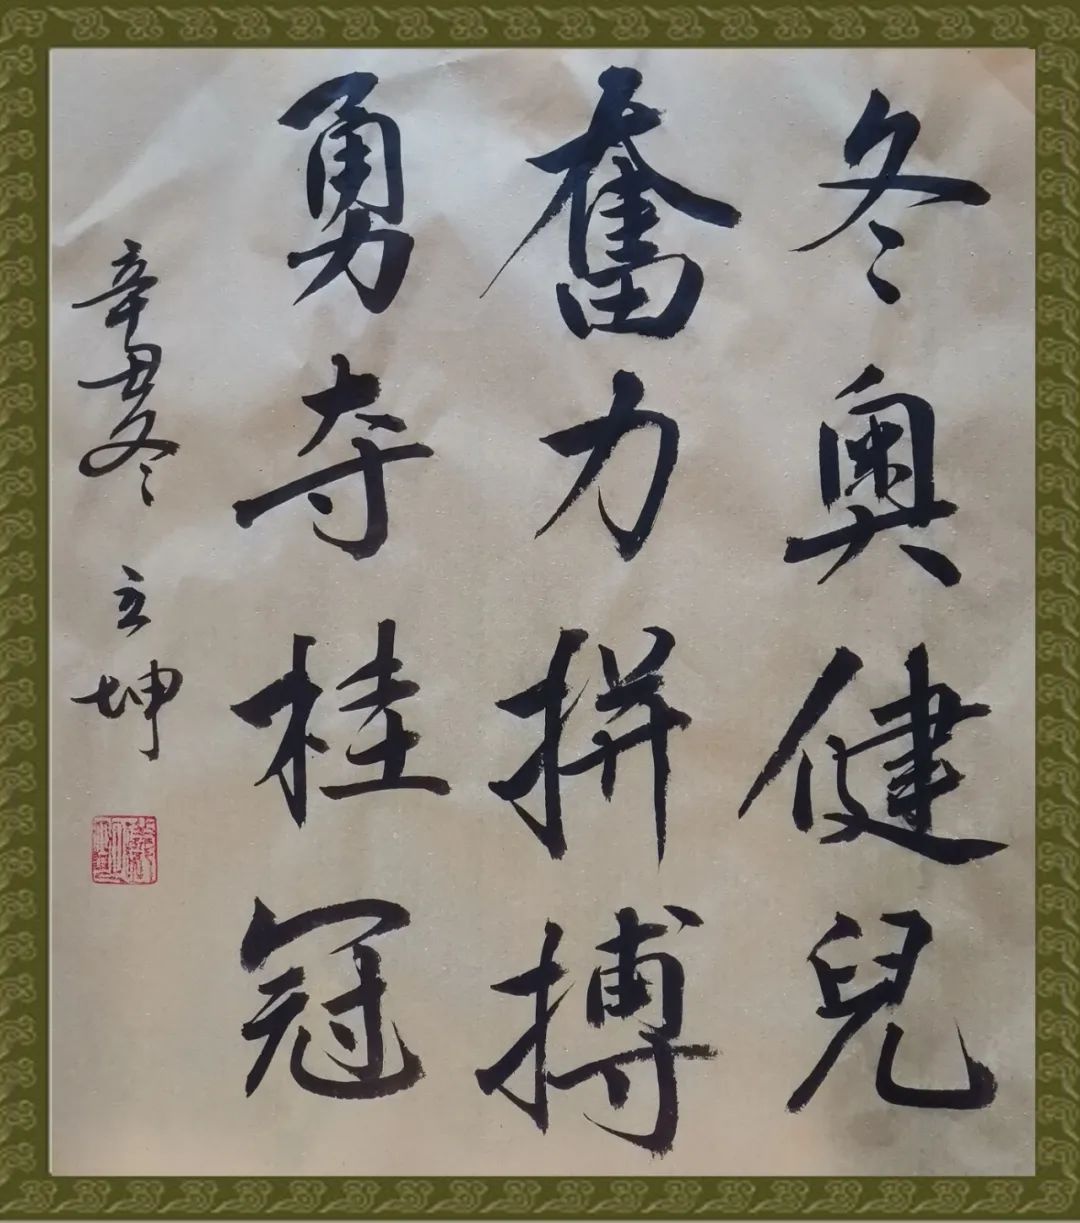 冬奥健兒
奮力拼搏
勇夺桂冠
辛丑冬 立坤